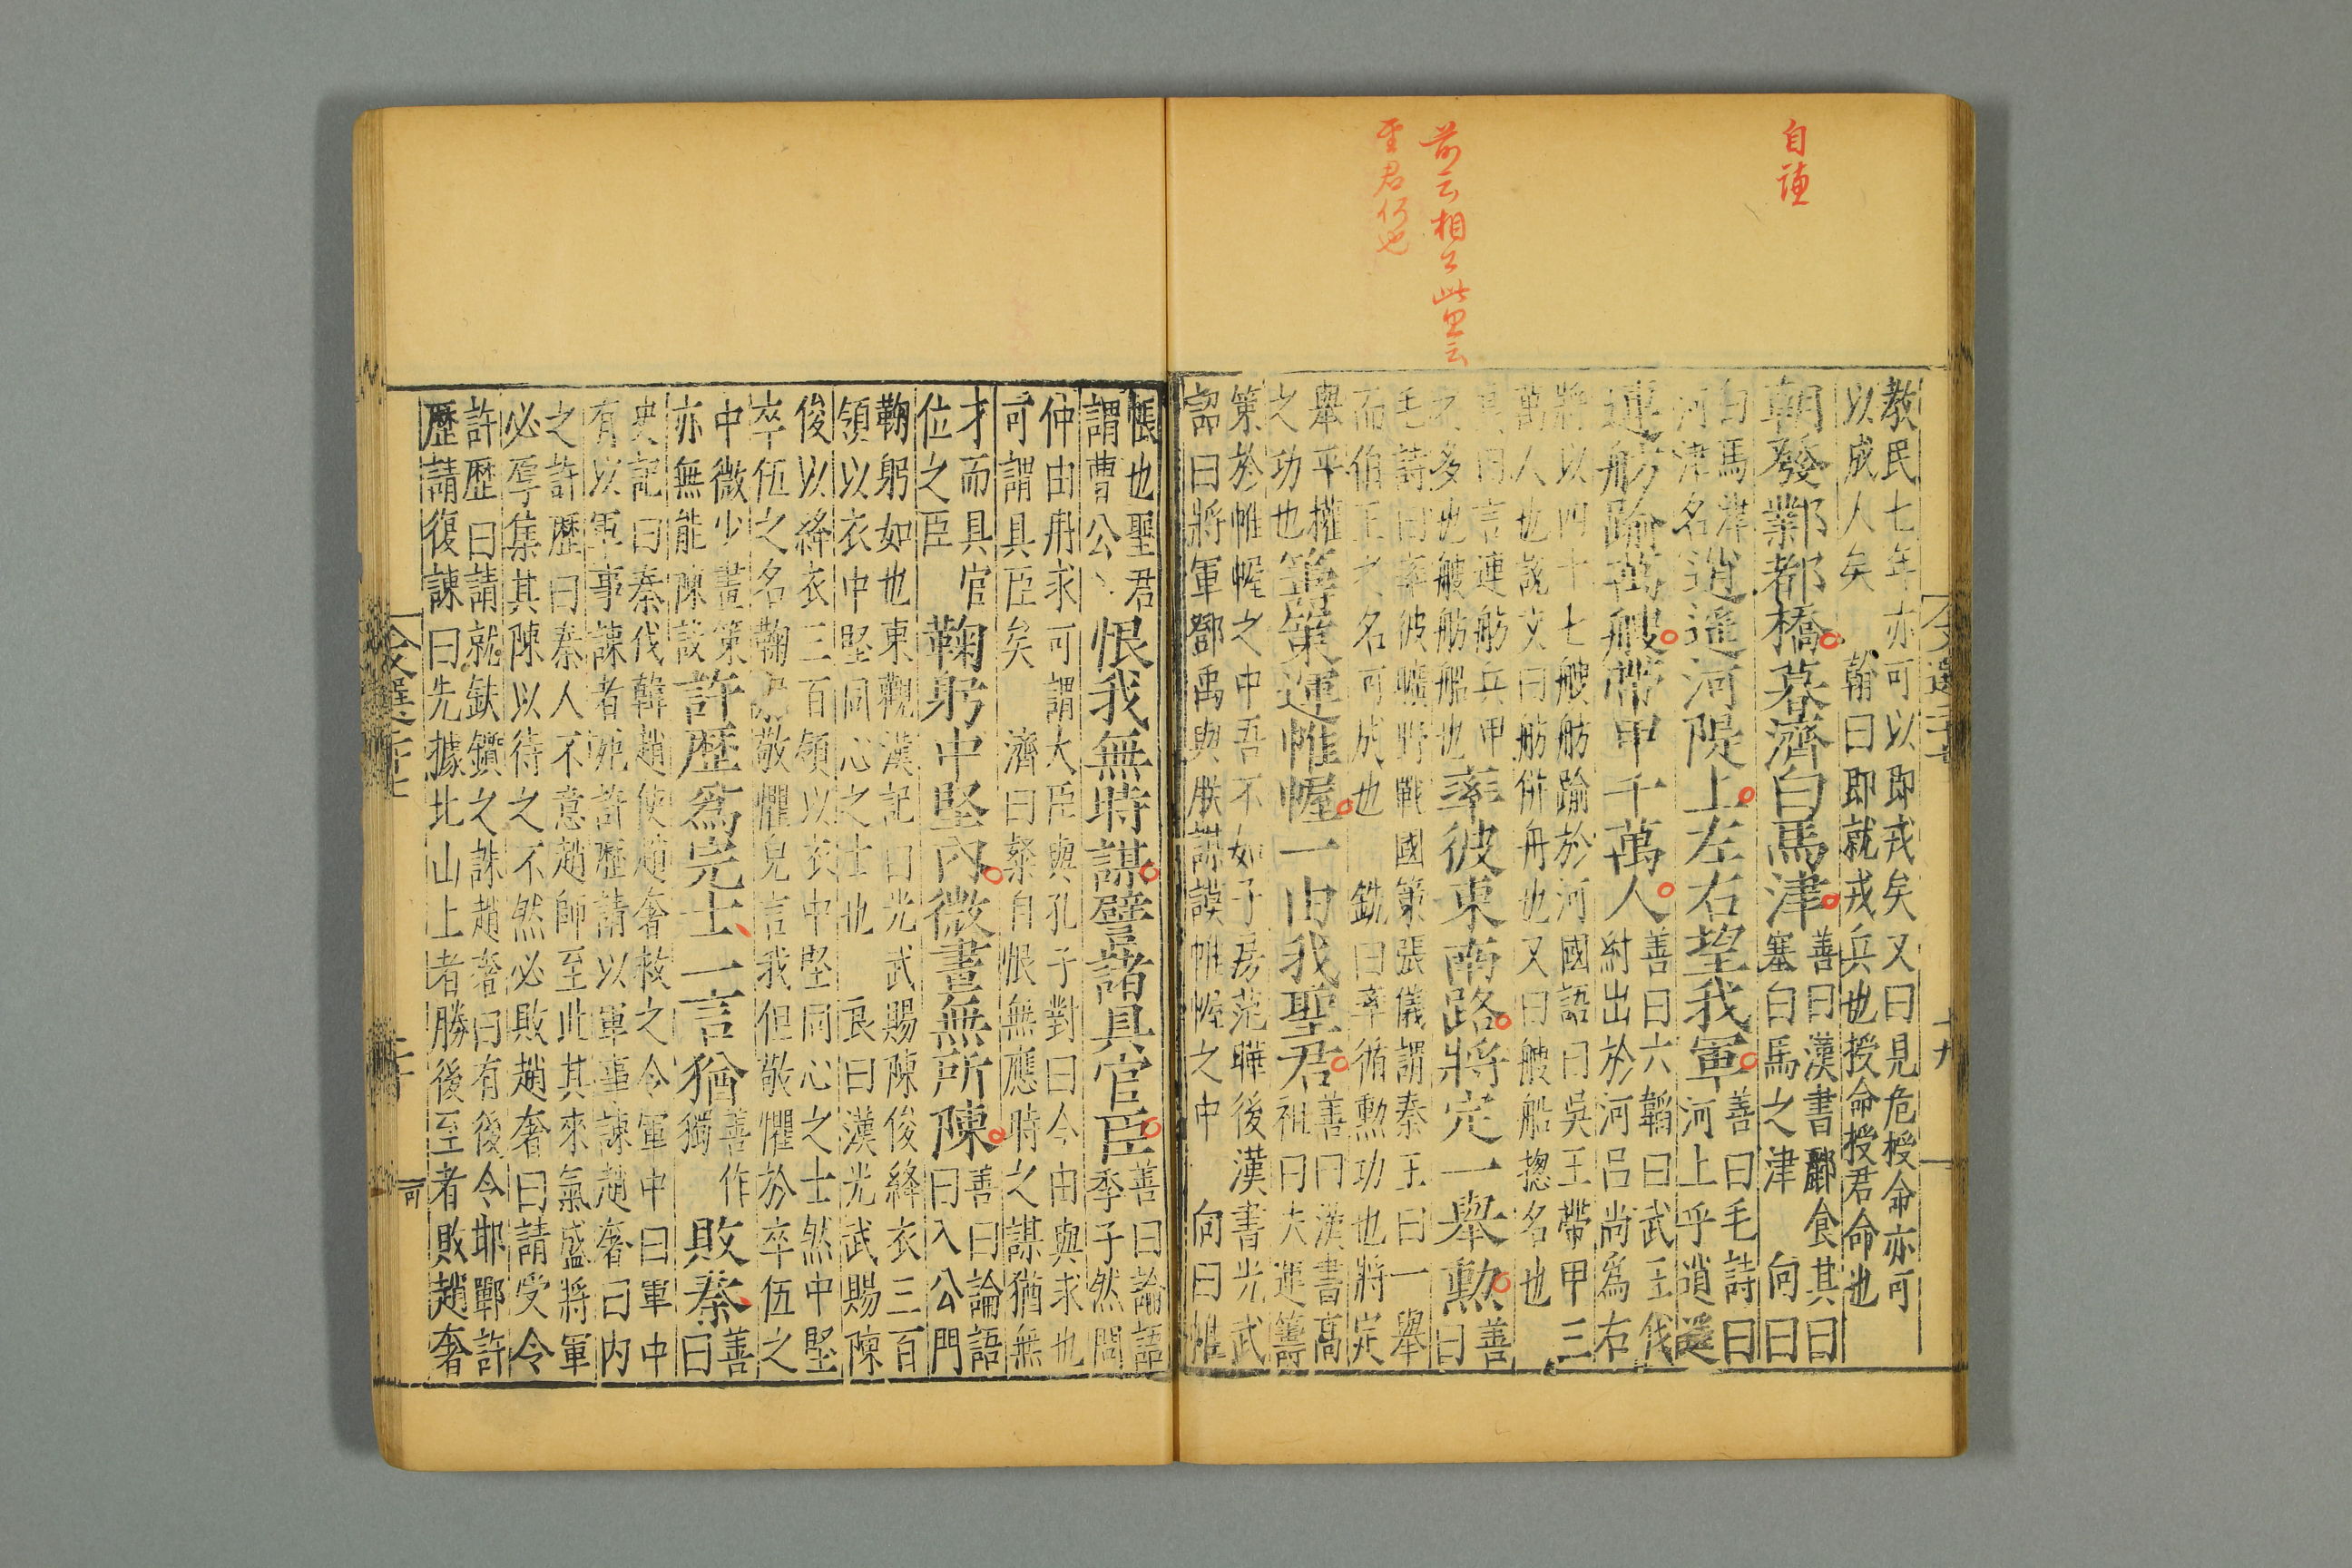 自謙
前云相公此又云
聖君何也
教民七年亦可以即戎矣又曰見危授命亦可
以成人矣 翰曰即就戎兵也授命授君命也
朝發鄴都橋暮濟白馬津善曰漢書酈食其曰
塞白馬之津 向曰
白馬津
河津名逍遙河隄上左右望我軍善曰毛詩曰
河上乎逍遥
連舫踰萬艘帶甲千萬人善曰六韜曰武王伐
紂出於河呂尚爲右
將以四十七艘舫踰於河國語曰吳王帶甲三
萬人也說文曰舫併舟也又曰艘船揔名也
良曰言連舫兵甲
之多也艘舫船也率彼東南路將定一舉勲善
曰
毛詩曰率彼曠野戰國策張儀謂秦王曰一舉
而伯王之名可成也 銑曰率循勲功也將定
舉平權
之功也籌策運帷幄一由我聖君善曰漢書高
祖曰夫運籌
策於帷幄之中吾不如子房范曄後漢書光武
詔曰將軍鄧禹與朕謀謨帷幄之中 向曰帷
帳也聖君
謂曹公恨我無時謀譬諸具官臣善曰論語
季子然問
仲由冉求可謂大臣與孔子對曰今由與求也
可謂具臣矣 濟曰粲自恨無應時之謀猶無
才而具官
位之臣鞠躬中堅內微畫無所陳善曰論語
曰入公門
鞠躬如也東觀漢記曰光武賜陳俊絳衣三百
領以衣中堅同心之士也 良曰漢光武賜陳
俊以絳衣三百領以衣中堅同心之士然中堅
卒伍之名鞠躬敬懼皃言我但敬懼於卒伍之
中微少畫策
亦無能陳設許歷爲完士一言猶善作
獨敗秦善
曰
史記曰秦伐韓趙使趙奢救之令軍中曰軍中
有以軍事諫者死許歷請以軍事諫趙奢曰内
之許歷曰秦人不意趙師至此其來氣盛將軍
必厚集其陳以待之不然必敗趙奢曰請受令
許歷曰請就鈇鑕之誅趙奢曰有後令邯鄲許
歷請復諫曰先據北山上者勝後至者敗趙奢